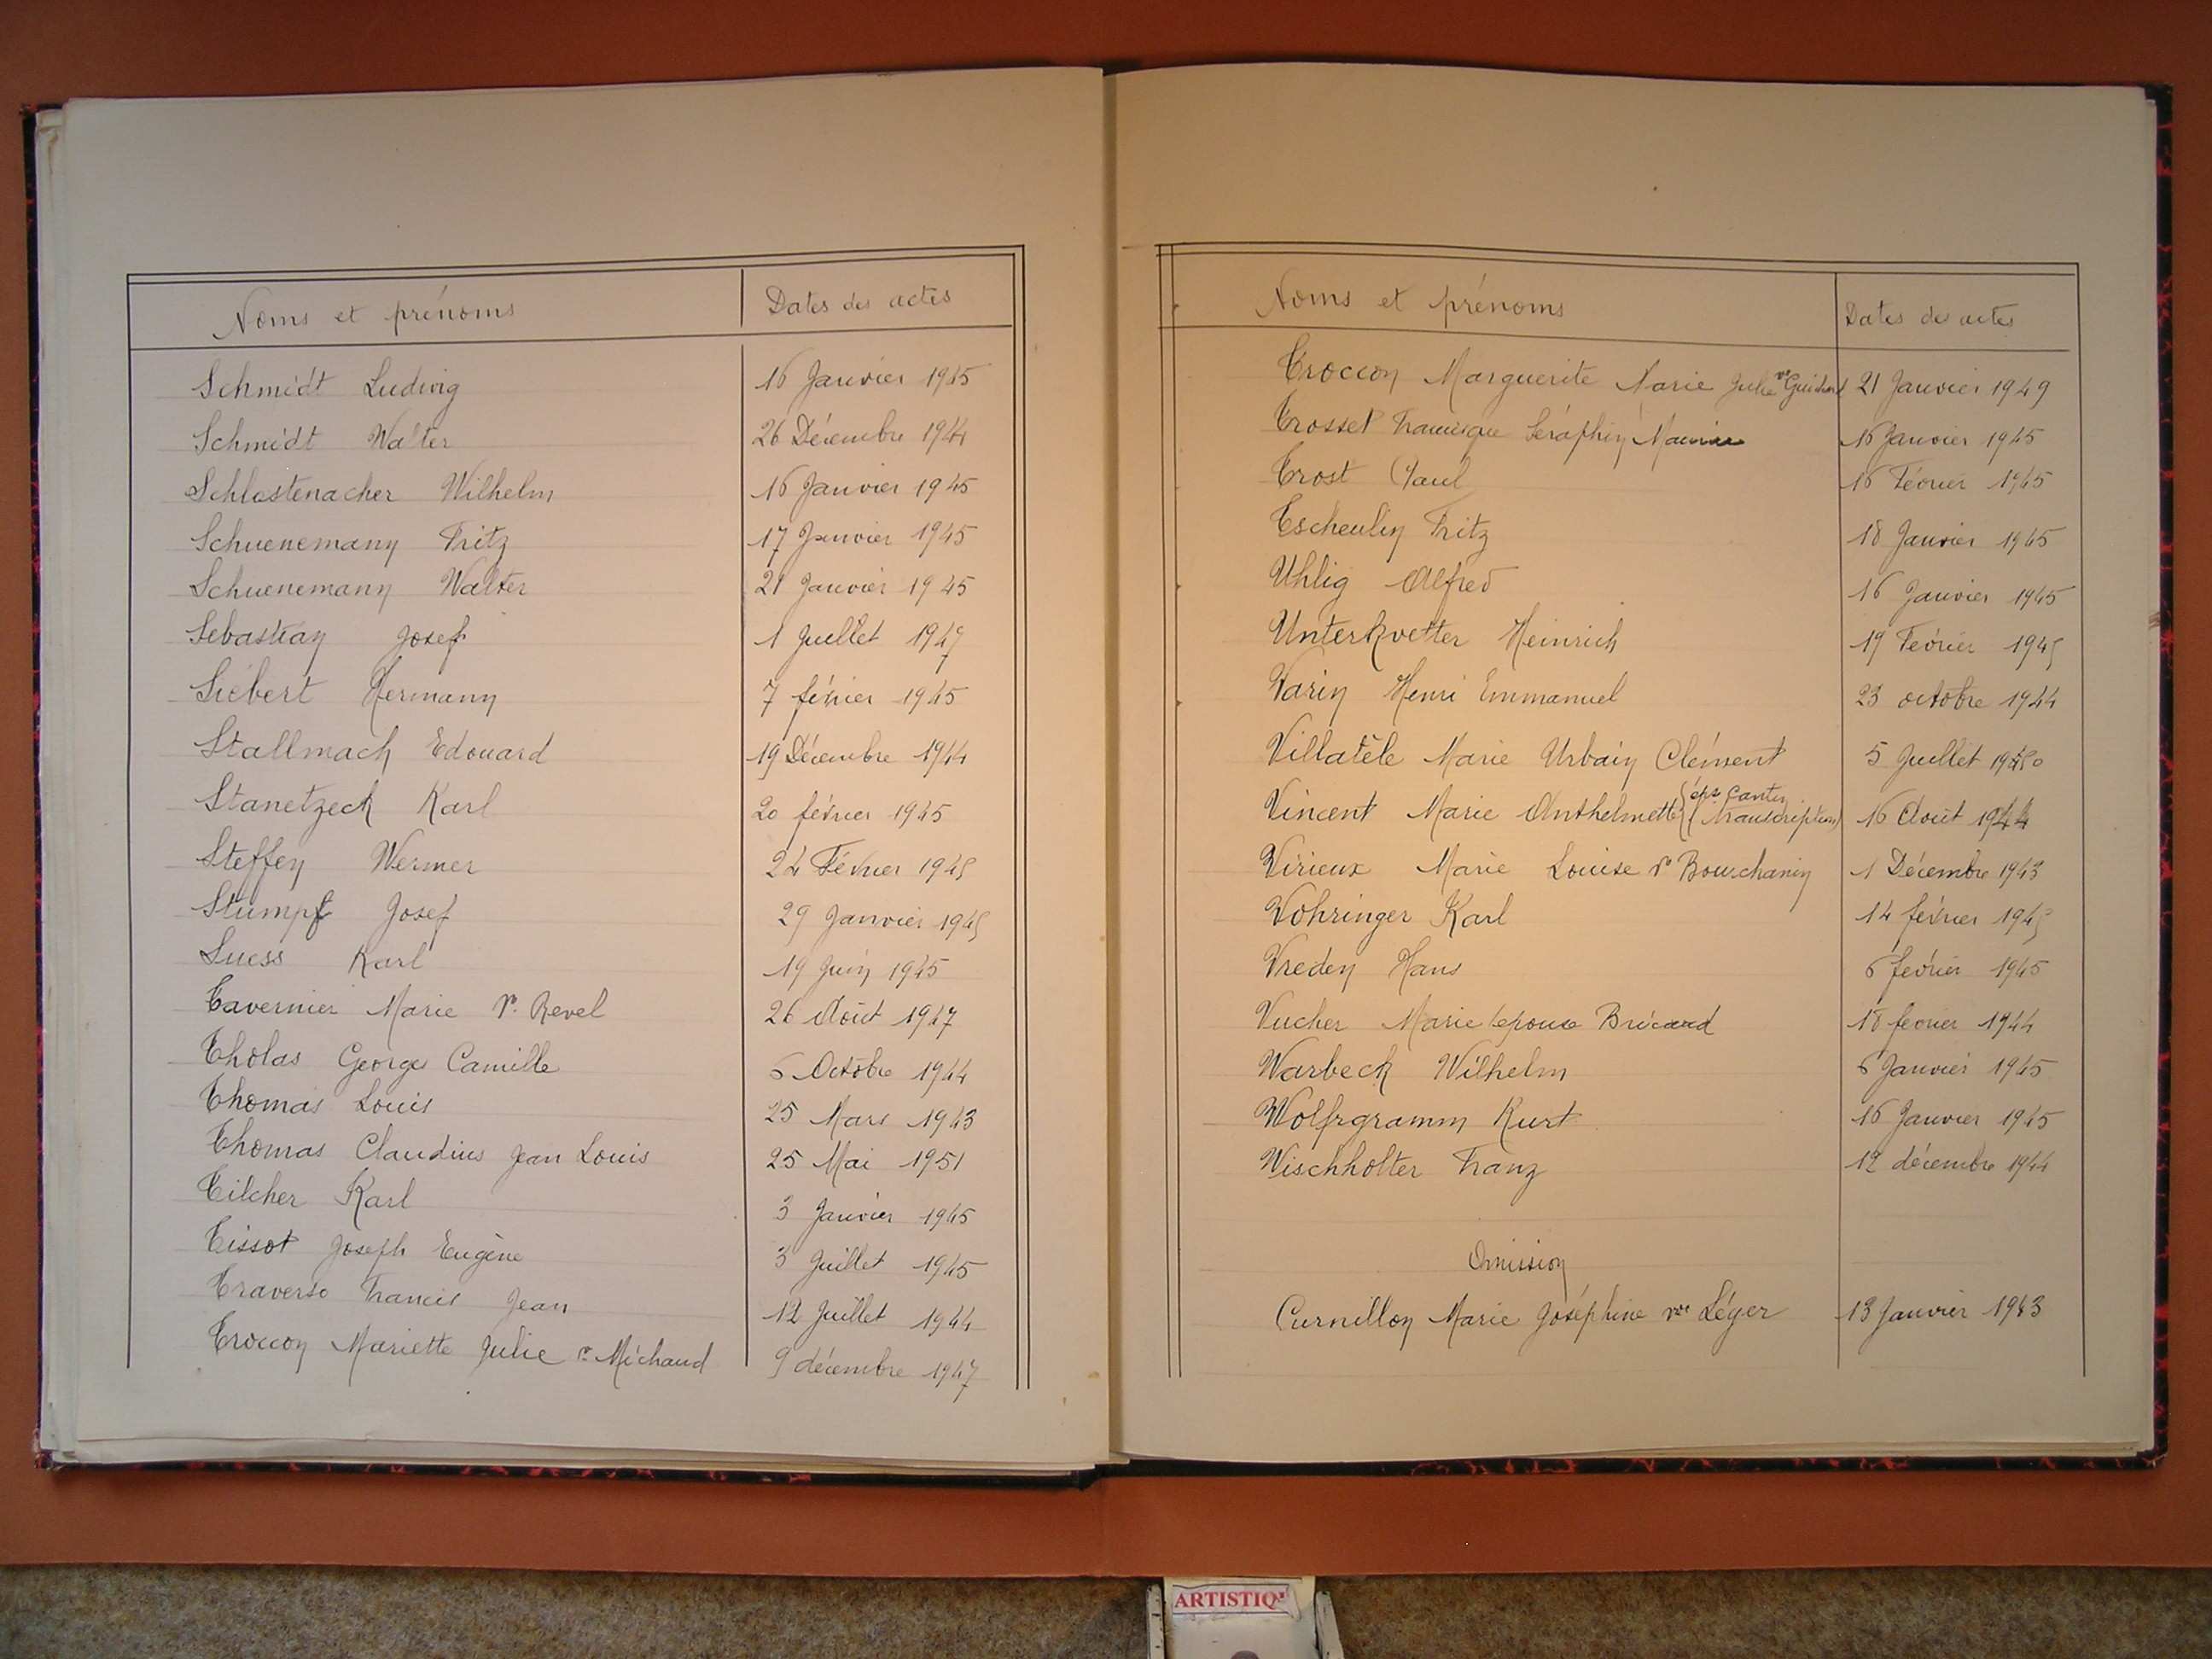 Noms et prénoms Dates des actes
Schmidt Ludwig 16 Janvier 1945
Schmidt Walter 26 Décembre 1944
Schlostenacher Wilhelm 16 Janvier 1945
Schuenemann Fritz 17 Janvier 1945
Schuenemann Walter 21 Janvier 1945
Sebastian Josef 1 Juillet 1947
Siebert Hermann 7 février 1945
Stallmach Edouard 19 Décembre 1944
Stanetzeck Karl 20 février 1945
Steffen Werner 24 Février 1945
Stumpf Josef 29 Janvier 1945
Suess Karl 19 Juin 1945
Tavernier Marie Ve Revel 26 Août 1947
Tholas Georges Camille 6 Octobre 1944
Thomas Louis 25 Mars 1943
Thomas Claudius Jean Louis 25 Mai 1951
Tilcher Karl 3 Janvier 1945
Tissot Joseph Eugène 3 Juillet 1945
Traverso Francis Jean 12 Juillet 1944
Troccon Mariette Julie Ve Michaud 9 décembre 1947
Noms et prénoms Dates des actes
Troccon Marguerite Marie Julie ve Guichard 21 Janvier 1949
Trosset Francisque Séraphin Maurice 16 Janvier 1945
Trost Paul 16 Février 1945
Tscheulin Fritz 18 Janvier 1945
Uhlig Alfred 16 Janvier 1945
Unterkvetter Heinrich 19 Février 1945
Varin Henri Emmanuel 23 octobre 1944
Villatèle Marie Urbain Clément 5 Juillet 1950
Vincent Marie Anthelmette (éps Cantin (transcription) 16 Août 1944
Virieux Marie Louise Ve Bourchanin 1 Décembre 1943
Vohringer Karl 14 février 1945
Vreden Hans 6 février 1945
Vucher Marie (épouse Bricard 18 février 1944
Warbeck Wilhelm 6 Janvier 1945
Wolfrgramm Kurt 16 Janvier 1945
Wischholter Franz 12 décembre 1944
Omission
Curnillon Marie Joséphine vve Léger 13 Janvier 1943
ARTISTIQ